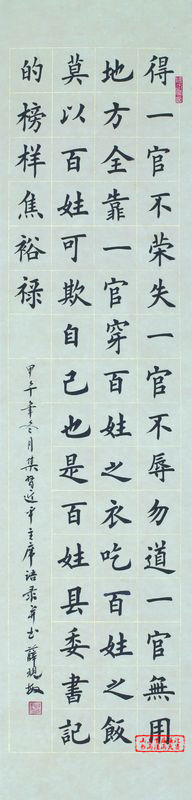 得一官不荣失一官不辱勿道一官無用
地方全靠一官穿百姓之衣吃百姓之飯
莫以百姓可欺自己也是百姓县委書記
的榜样焦裕禄
甲午年冬月集習近平主席语录并书薛現敏